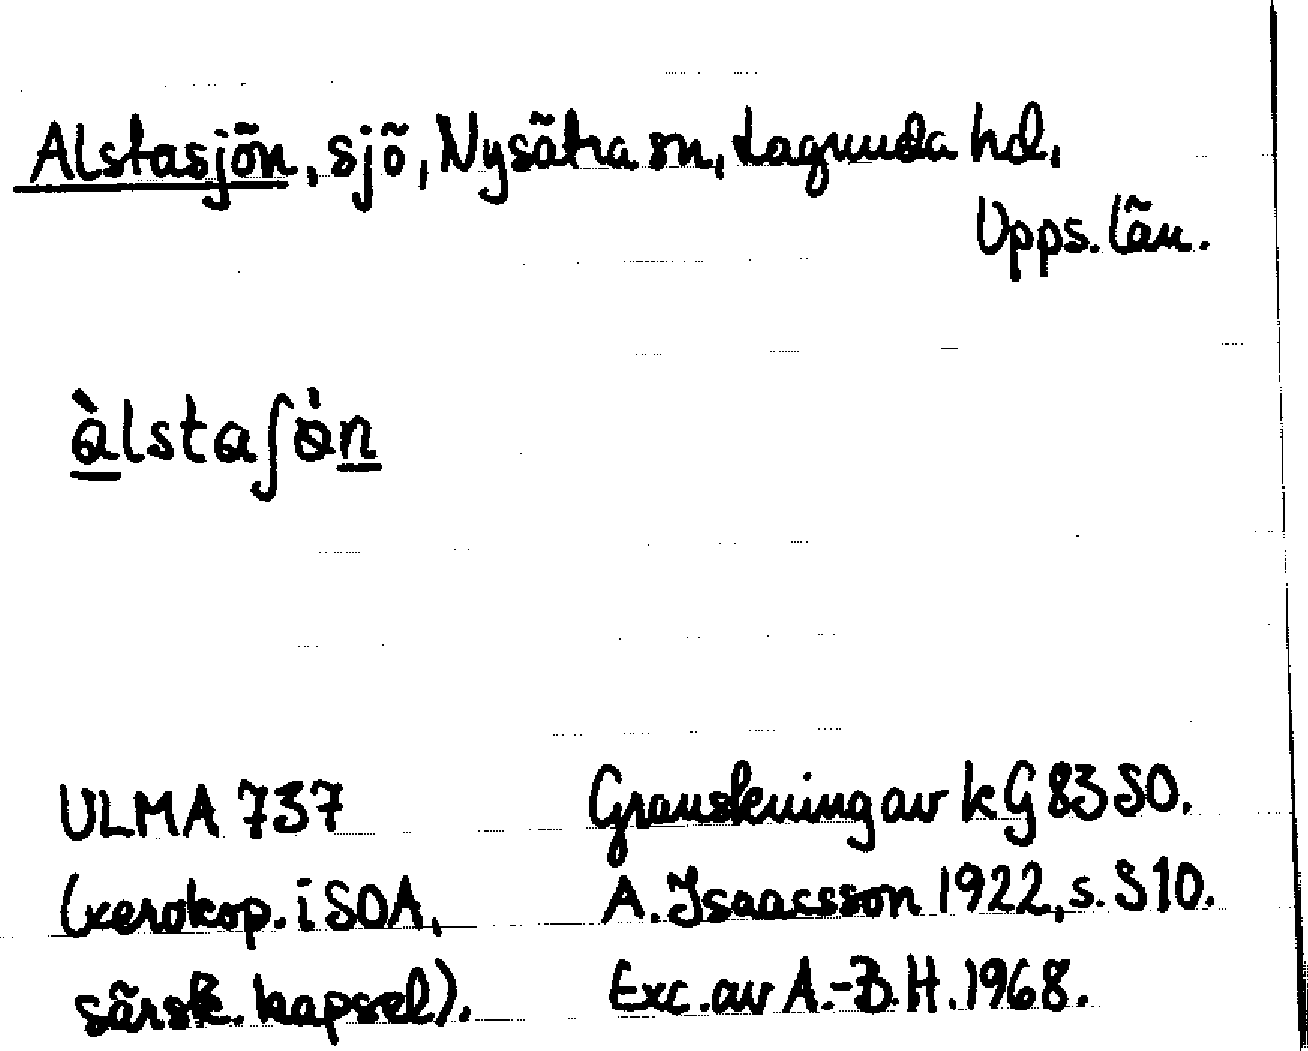 Alstasjön, sjö, Nysätra sn, Lagunda hd,
Upps. län.
àlstaʃὼn
ULMA 737
(xerokop. i SOA,
särsk. kapsel).
Granskning av kG 83 SO.
A. Isaacsson 1922, s. S10.
Exc. av A.-B.H. 1968.